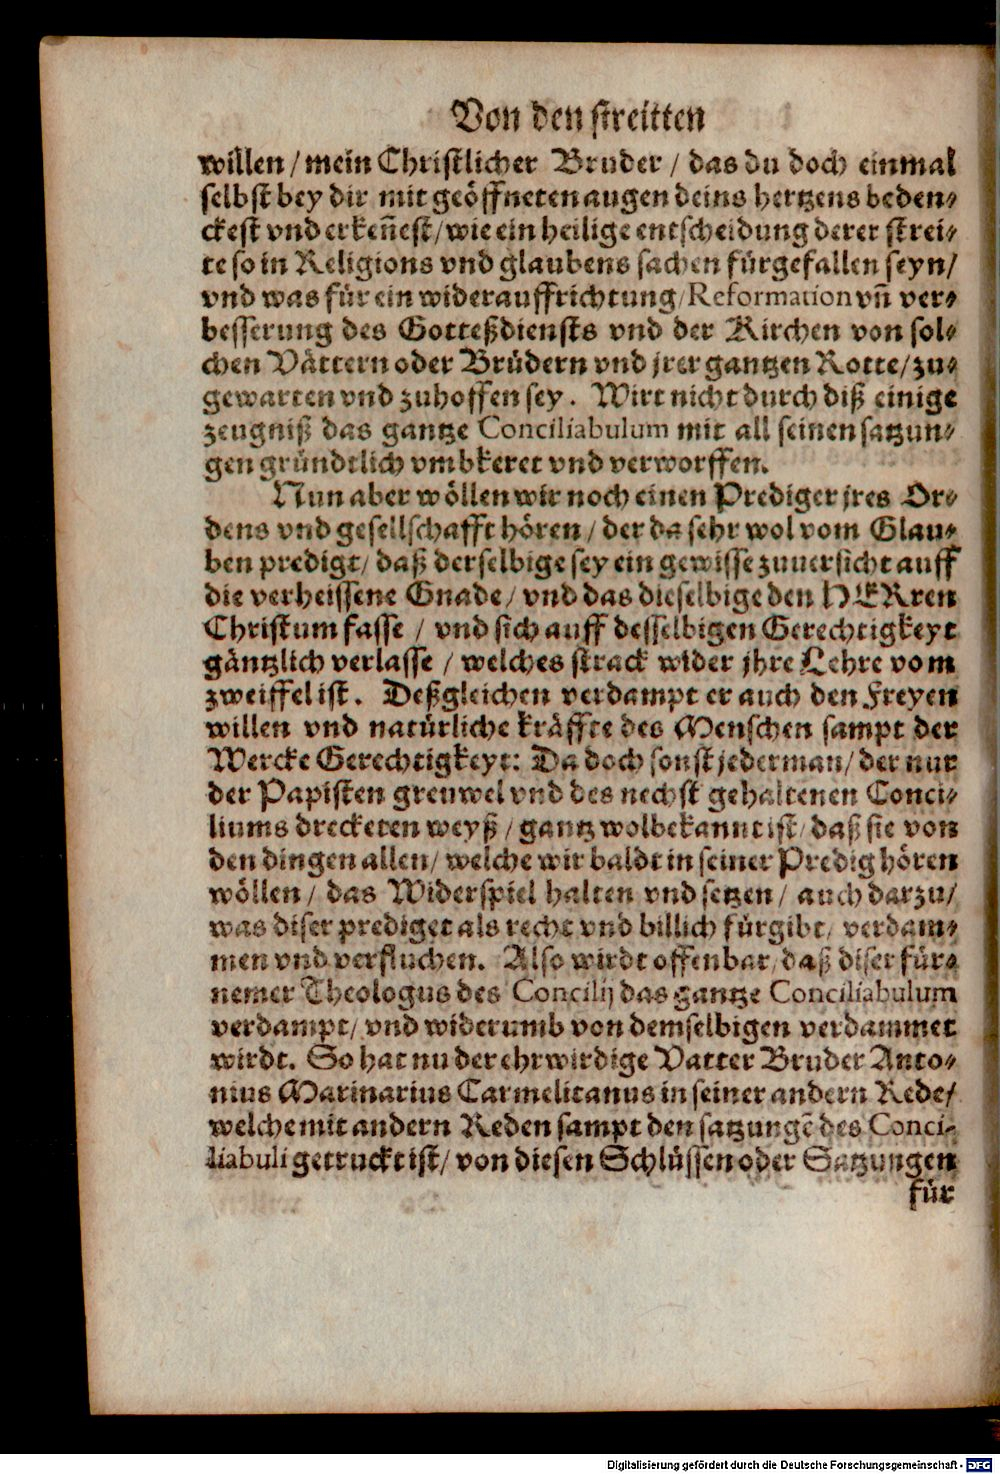 Von den streitten
willen / mein Christlicher Bruder / das du doch einmal
selbst bey dir mit geöffneten augen deins hertzens beden⸗
ckest vnd erkeñest / wie ein heilige entscheidung derer strei⸗
te so in Religions vnd glaubens sachen fürgefallen seyn /
vnd was für ein widerauffrichtung / Reformation vñ ver⸗
besserung des Gotteßdiensts vnd der Kirchen von sol⸗
chen Vättern oder Brüdern vnd jrer gantzen Rotte / zu⸗
gewarten vnd zuhoffen sey. Wirt nicht durch diß einige
zeugniß das gantze Conciliabulum mit all seinen satzun⸗
gen gründtlich vmbkeret vnd verworffen.
Nun aber wöllen wir noch einen Prediger jres Or⸗
dens vnd gesellschafft hören / der da sehr wol vom Glau⸗
ben predigt / daß derselbige sey ein gewisse zuuersicht auff
die verheissene Gnade / vnd das dieselbige den HERren
Christum fasse / vnd sich auff desselbigen Gerechtigkeyt
gäntzlich verlasse / welches strack wider jhre Lehre vom
zweiffel ist. Deßgleichen verdampt er auch den Freyen
willen vnd natürliche kräffte des Menschen sampt der
Wercke Gerechtigkeyt: Da doch sonst jederman / der nur
der Papisten grewel vnd des nechst gehaltenen Conci⸗
liums drecketen weyß / gantz wolbekannt ist / daß sie von
den dingen allen / welche wir baldt in seiner Predig hören
wöllen / das Widerspiel halten vnd setzen / auch darzu /
was diser prediget als recht vnd billich fürgibt / verdam⸗
men vnd verfluchen. Also wirdt offenbar / daß diser für⸗
nemer Theologus des Concilij das gantze Conciliabulum
verdampt / vnd widerumb von demselbigen verdammet
wirdt. So hat nu der ehrwirdige Vatter Bruder Anto⸗
nius Marinarius Carmelitanus in seiner andern Rede /
welche mit andern Reden sampt den satzungẽ des Conci-
liabuli getruckt ist / von diesen Schlüssen oder Satzungen
für
Digitalisierung gefördert durch die Deutsche Forschungsgemeinschaft - DFG